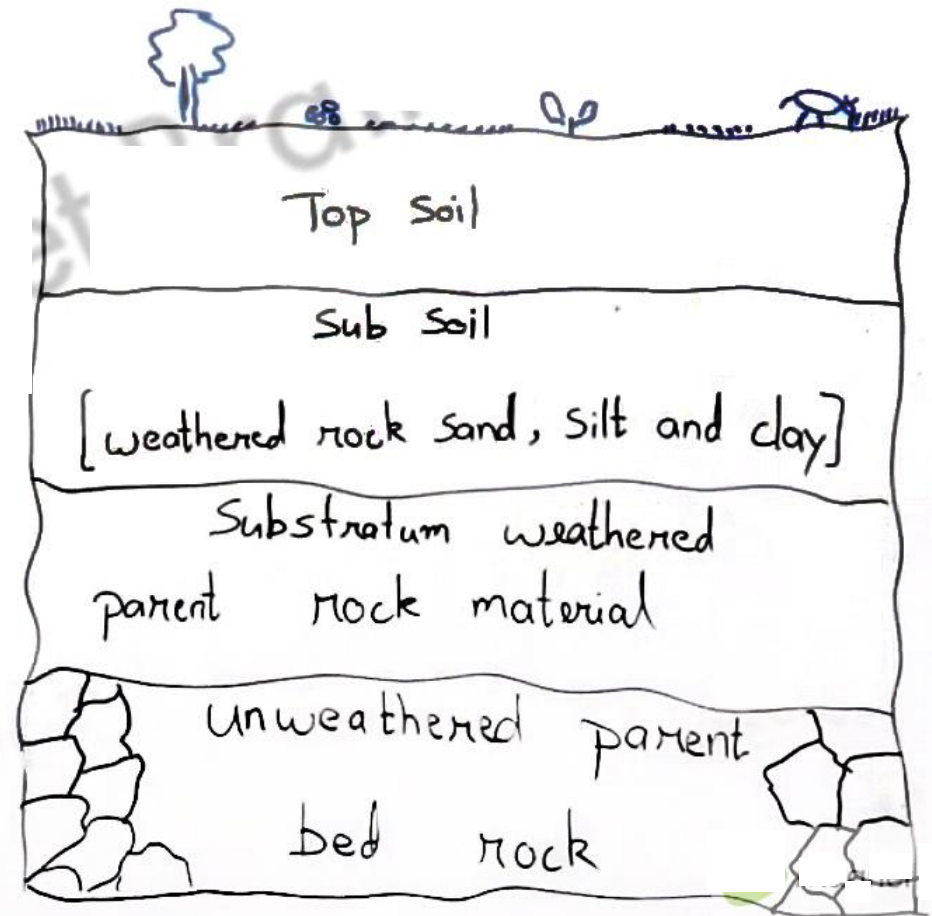 Top Soil
Sub Soil
[weathered rock sand, silt and clay]
Substratum weathered
parent rock material
unweathered parent
bed rock